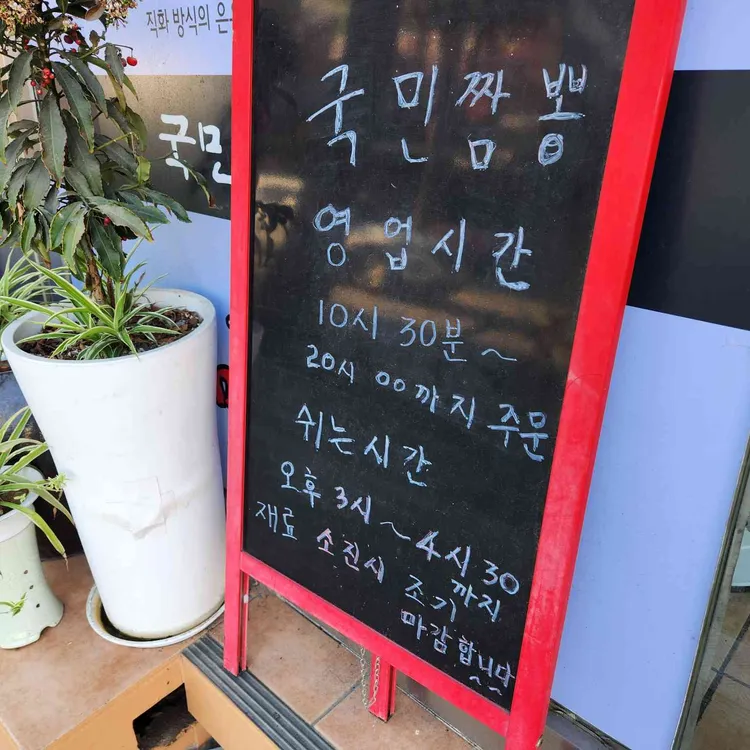 직화 방식의
국민
국민짬뽕
영업시간
10시 30분 ~
20시 00까지 주문
쉬는시간
오후 3시 ~ 4시 30까지
재료 소진시 조기
마감합니다